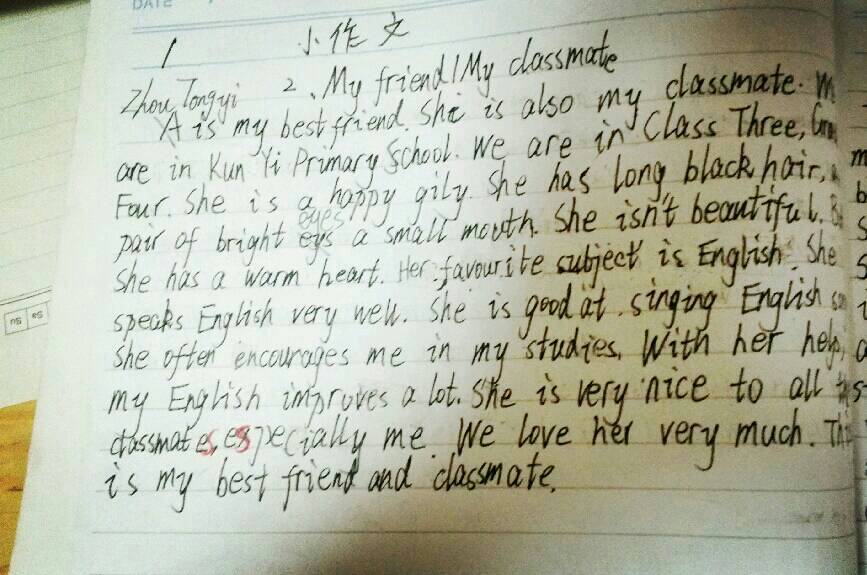 DATE
1 小作文
Zhou Tongyi 2、My friend/My classmate
A is my best friend. She is also my classmate.
are in Kun Yi Primary School. We are in Class Three,
Four. She is a happy gily. She has long black hair,
eyes
pair of bright eys a small mouth. She isn't beautiful.
She has a warm heart. Her favourite subject is English. She
speaks English very well. She is good at singing English
She often encourages me in my studies. With her help,
my English improves a lot. She is very nice to all
classmates, especially me. We love her very much.
is my best friend and classmate.
Su Sa